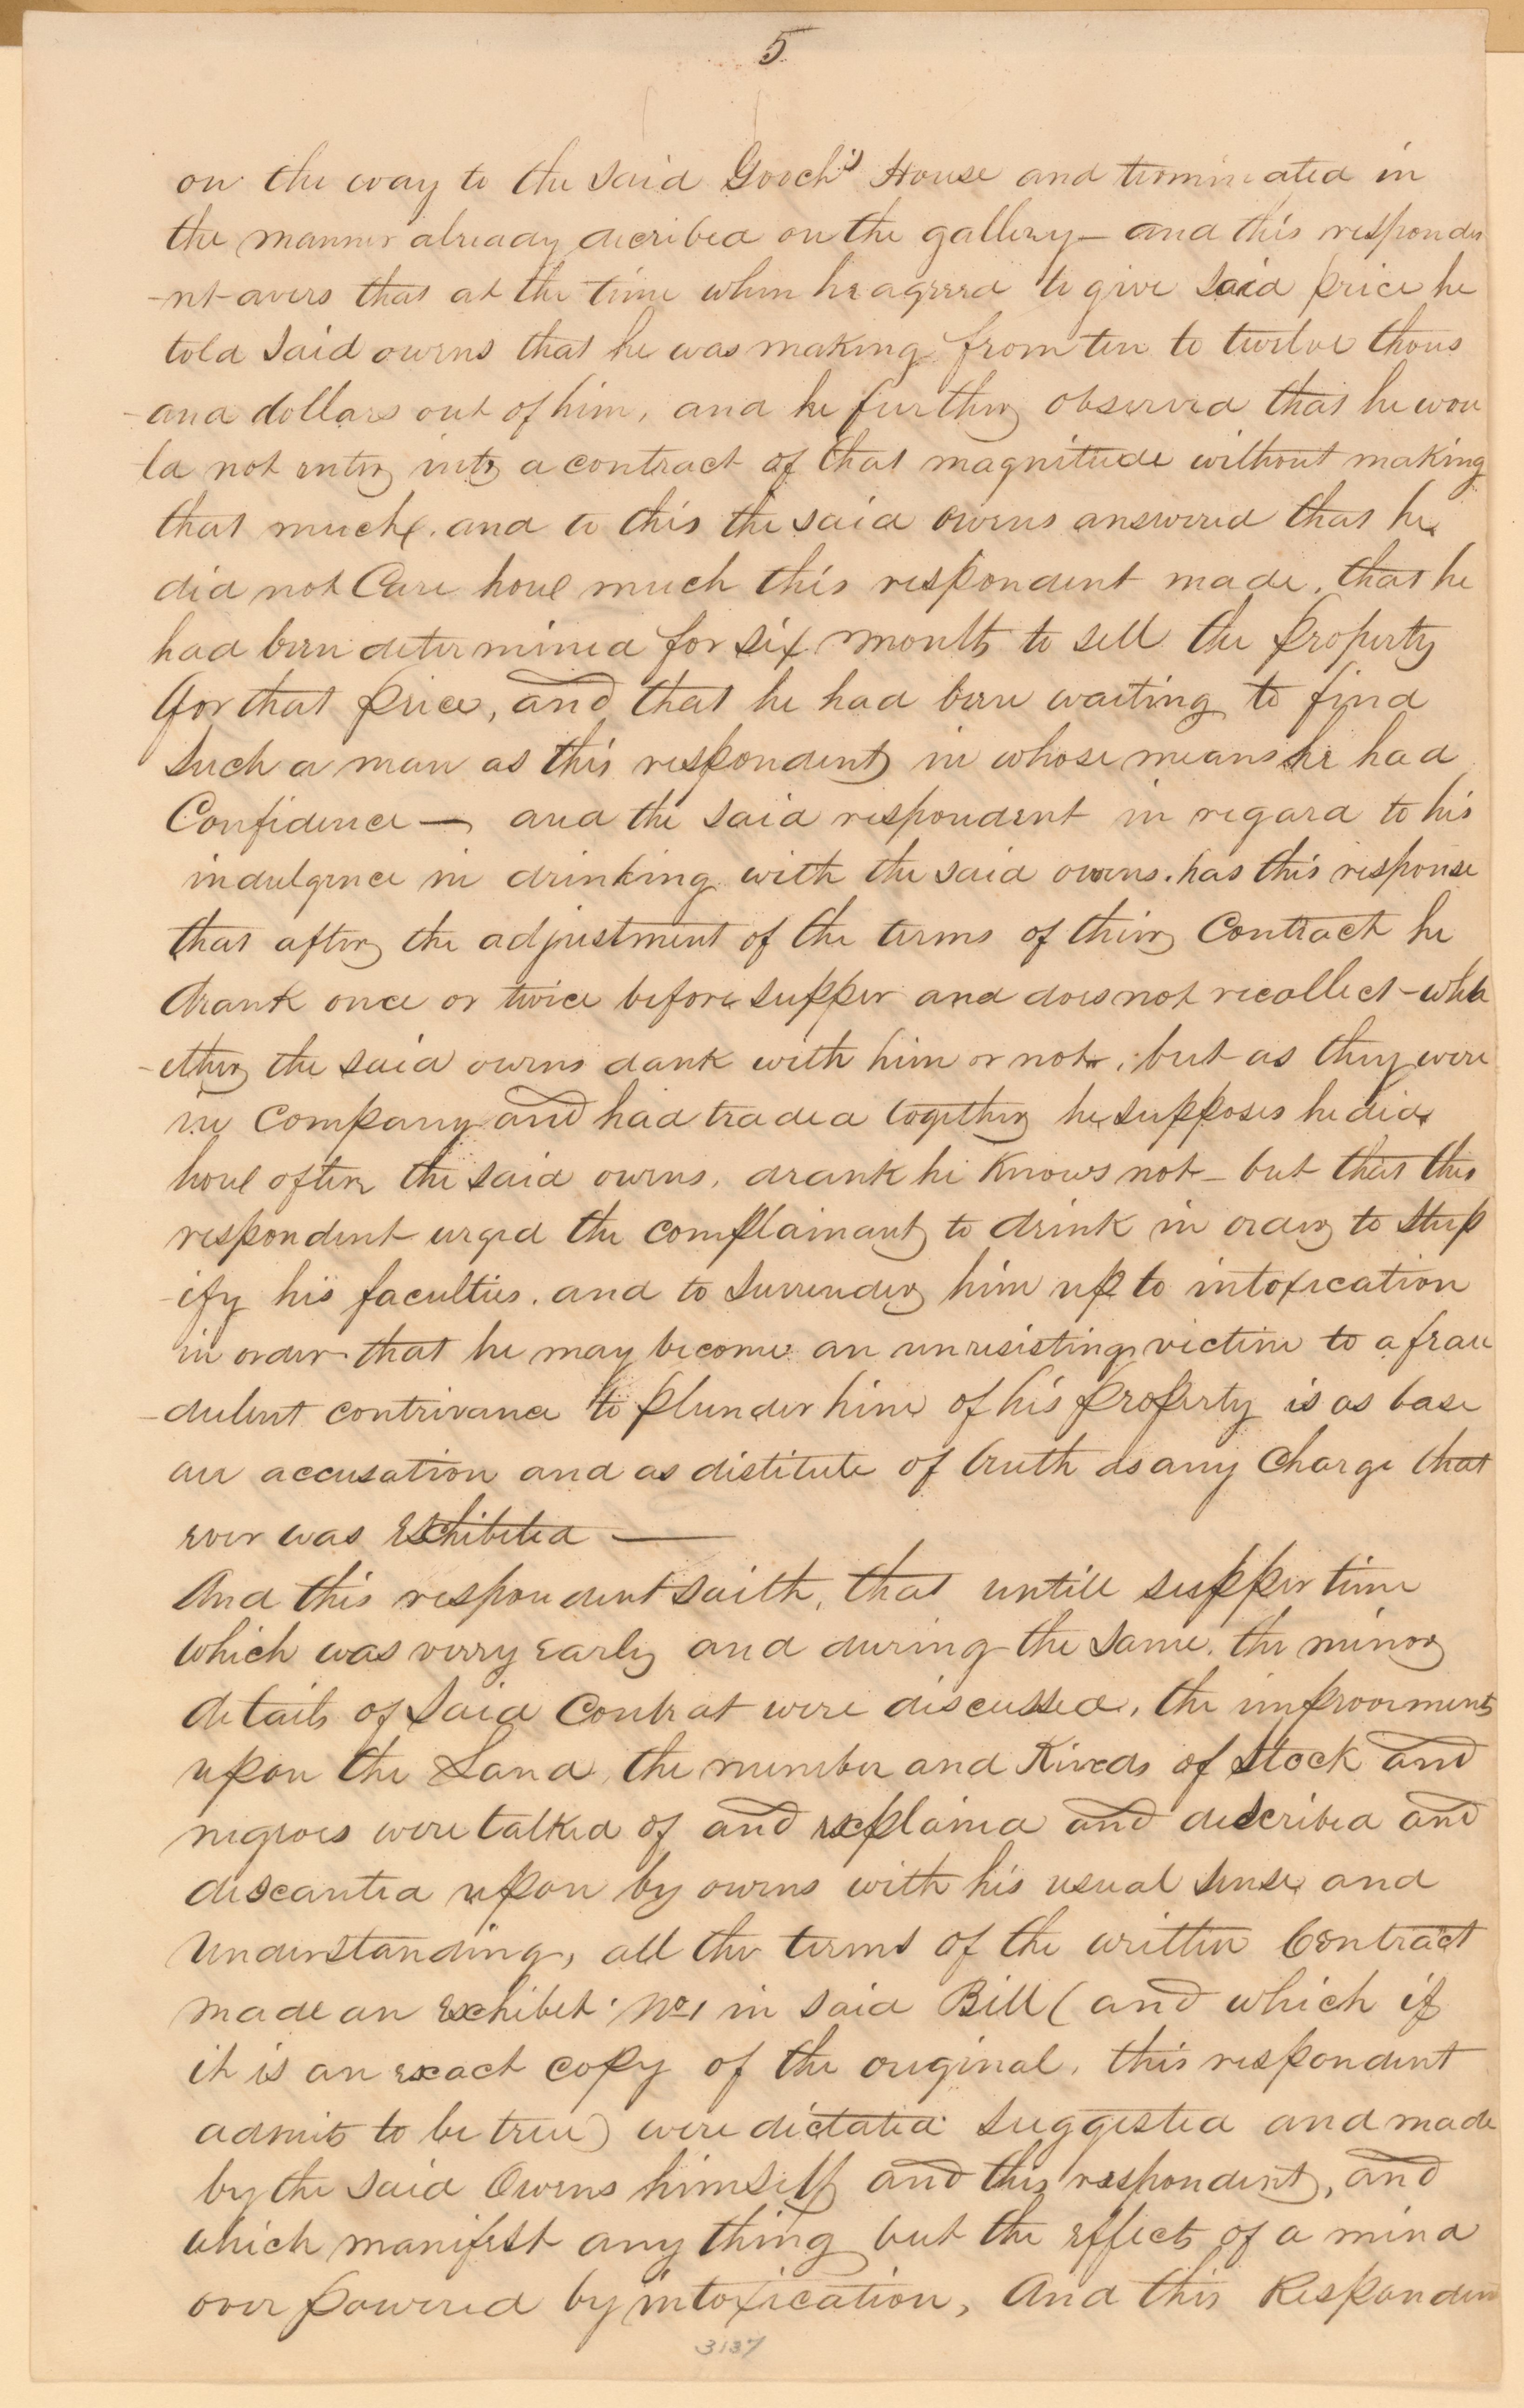 5
on the way to the said Gooch's House and terminated in
the manner already decribed on the gallery — and this responde
-nt avers that at the time when he agreed to give said price he
told said owens that he was making from ten to twelve thous
-and dollars out of him, and he further observed that he wou
-ld not enter into a contract of that magnitude without making
that much. and to this the said owens answered that he
did not Care how much this respondent made, that he
had been determined for six months to sell the property
for that price, and that he had been waiting to find
such a man as this respondent in whose means he had
Confidence — and the said respondent in regard to his
indulgence in drinking with the said owens. has this response
that after the adjustment of the terms of their Contract he
drank once or twice before supper and does not recollect - whe
-ether the said owens dank with him or not, but as they were
in Company and had traded together he supposes he did
how often the said owens, drank he Knows not - but that this
respondent urged the complainant to drink in order to stup
-ify his faculties. and to surrender him up to intoxication
in order that he may become an unresisting victim to a frau
-dulent contrivance to plunder him of his property is as base
an accusation and as distitute of truth as any Charge that
ever was Exhibited —
And this respondent saith, that untill supper time
which was very early and during the same. the minor
details of said Contrat were discussed, the improvements
upon the Land, the number and Kinds of stock and
negroes were talked of and explaind and described and
discanted upon by owens with his usual sense and
Understanding, all the terms of the written Contract
made an Exhibet No 1 in said Bill (and which if
it is an exact copy of the original, this respondent
admits to be true) were dictated suggested and made
by the said Owens himself and this respondent, and
which manifest any thing but the effects of a mind
over powered by intoxication, And this Responden
3137